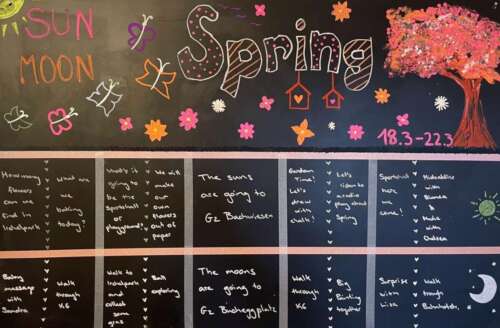 SUN
MOON
Spring
18.3-22.3
How many
flowers
can we
find in
Irchelpark
What are
we
baking
today?
What's it
going to
be the
sportshall
or
playground?
We will
make
our
own
flowers
out of
paper
The suns
are going to
GZ Bachwiesen
Garden
Time!
Let's
draw
with
chalk!
Let's
listen to
audio
play about
Spring
Sportshall
here
we
come!
with
Bianca
Music
with
Chelsea
Baby
massage
with
Sandra
Walk
through
K6
Walk to
Irchelpark
and
collect
some
grass
Ball
exploring
The moons
are going to
GZ Bucheggplatz
Walk
through
K6
Big
Painting
together
Surprise
with
Lisa
Walk
through